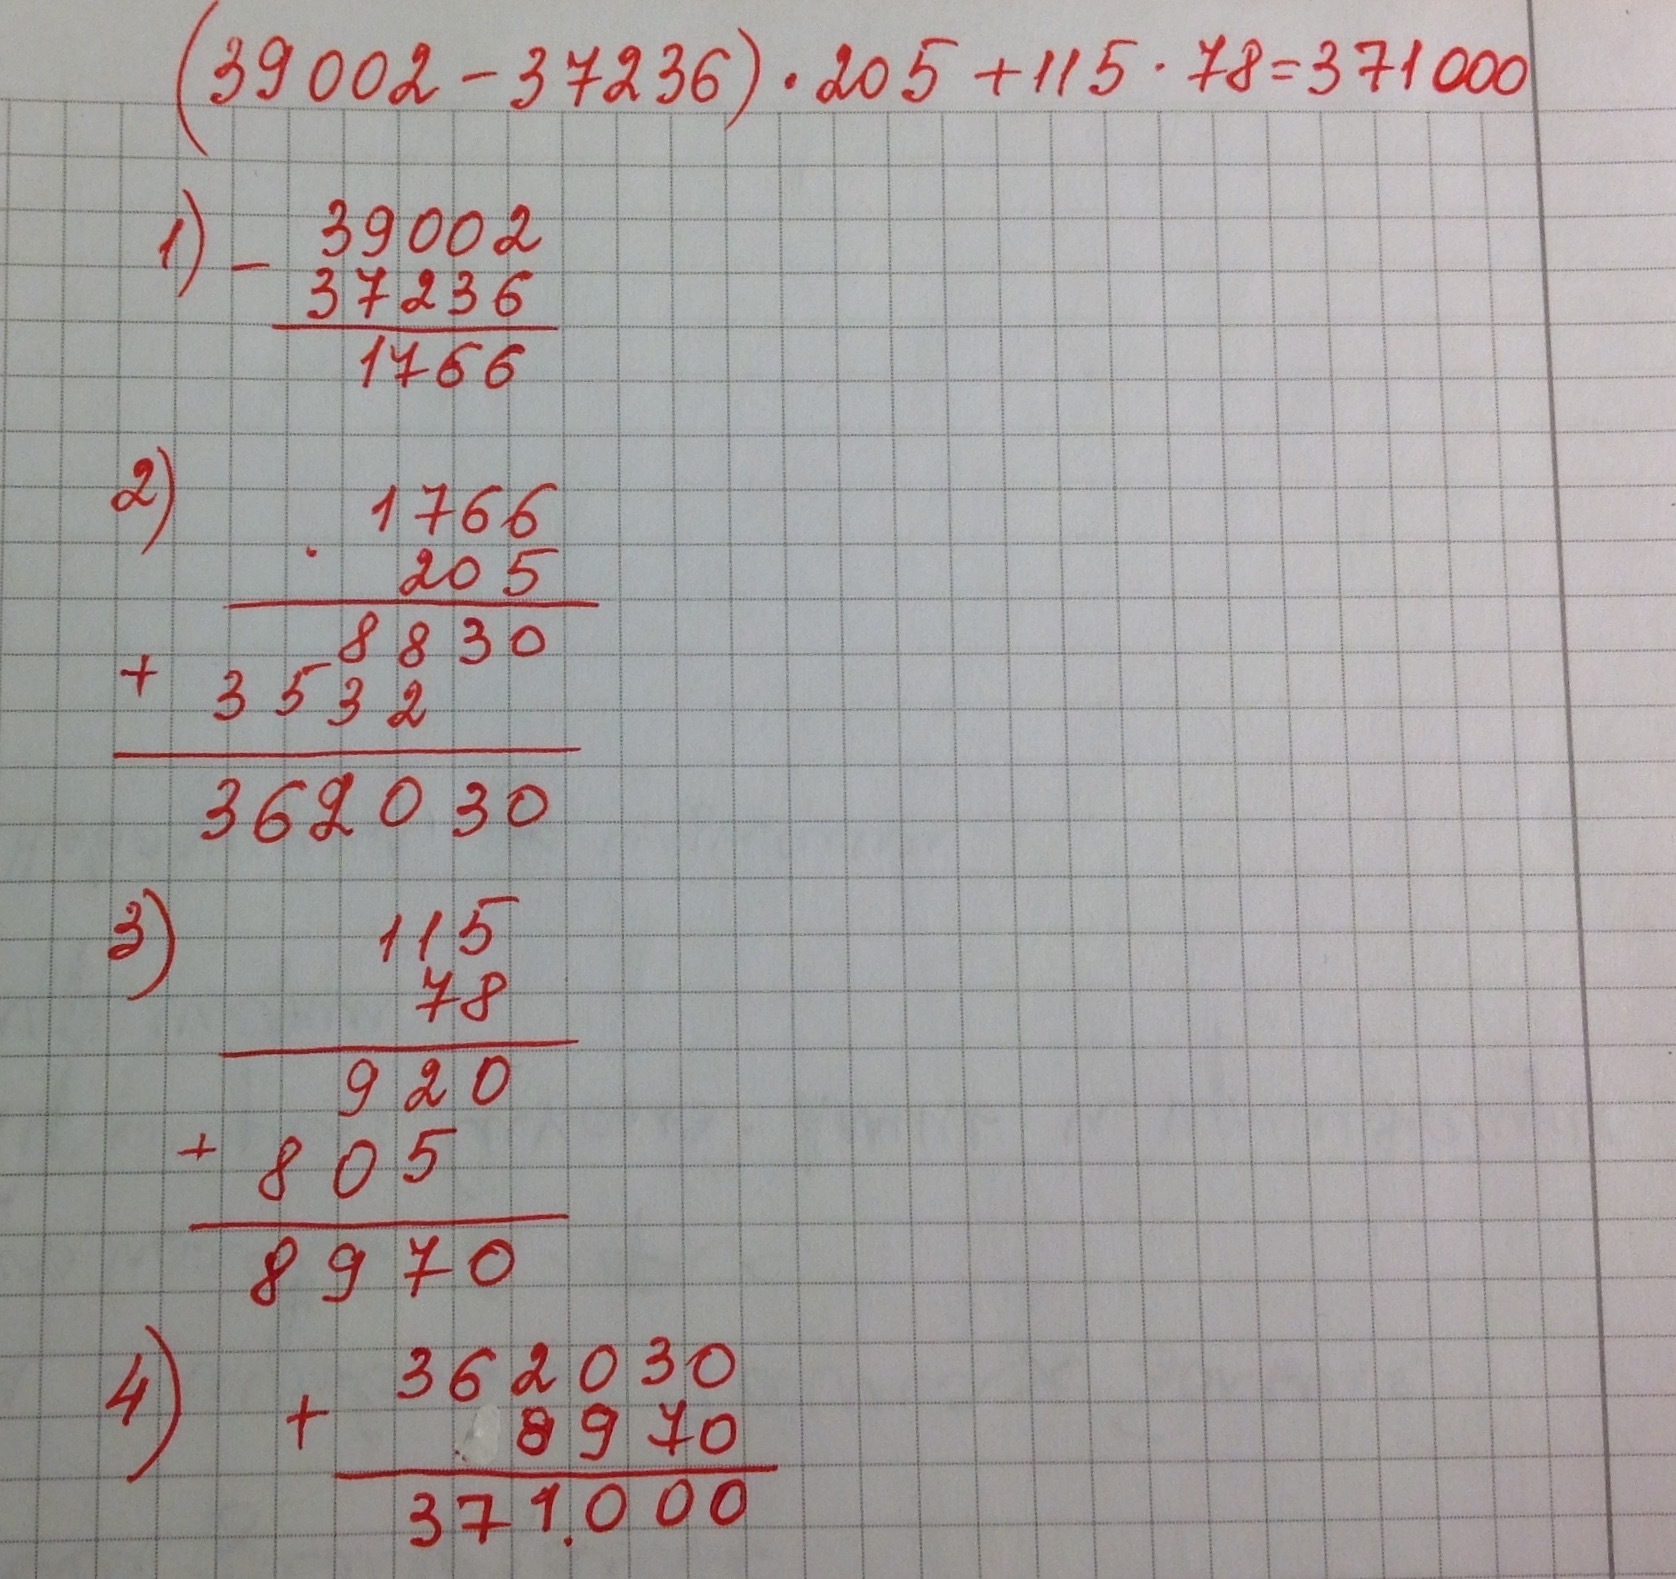 (39002-37236)·205+115·78=371000
1) - 39002
37236
1766
2) 1766
· 205
8830
+ 3532
362030
3) 115
78
920
+ 805
8970
4) 362030
+ 8970
371.000